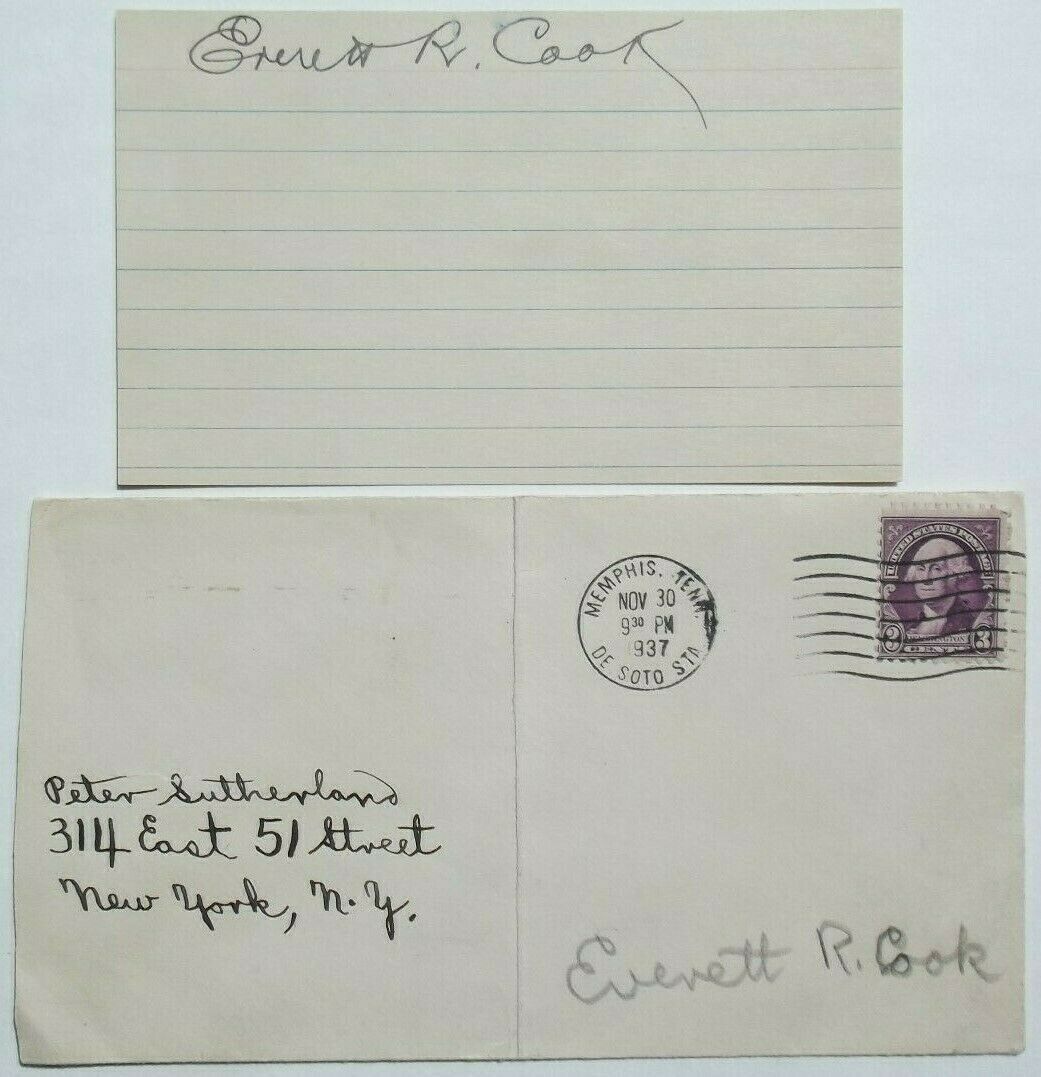 Everett R. Cook
MEMPHIS, TENN.
NOV 30
9 30 PM
1937
DE SOTO STA.
UNITED STATES POSTAGE
3 WASHINGTON 3
CENTS
Peter Sutherland
314 East 51 Street
New York, N.Y.
Everett R. Cook